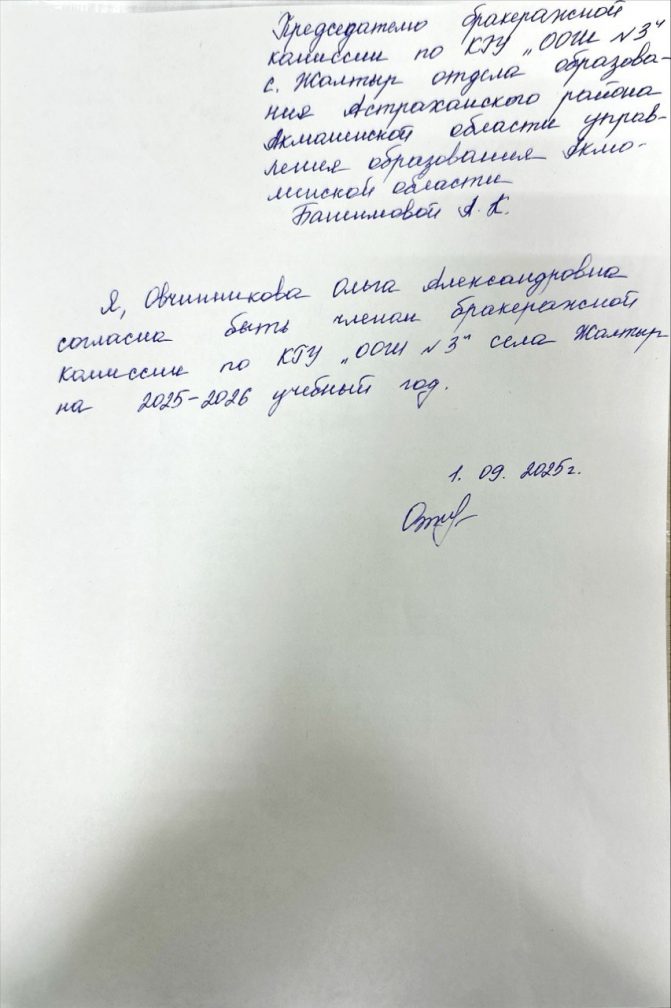 Председателю бракеражной
комиссии по КГУ „ООШ №3"
с. Жалтыр отдела образова-
ния Астраханского района
Акмолинской области управ-
ления образования Акмо-
линской области
Башимовой А. К.
Я, Овчинникова Ольга Александровна
согласна быть членом бракеражной
комиссии по КГУ „ООШ №3" села Жалтыр
на 2025-2026 учебный год.
1. 09. 2025г.